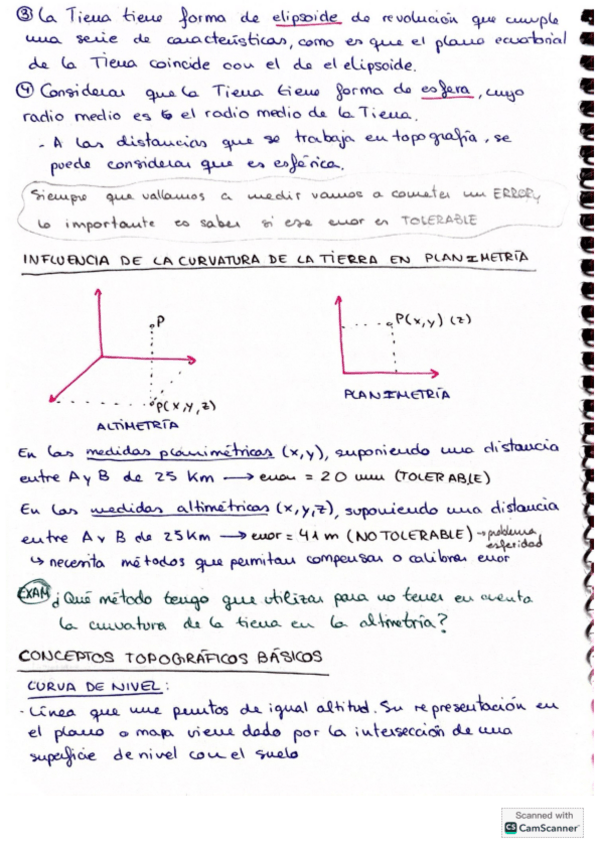 ③ La Tierra tiene forma de elipsoide de revolución que cumple
una serie de características, como es que el plano ecuatorial
de la Tierra coincide con el de el elipsoide.
④ Considerar que la Tierra tiene forma de esfera, cuyo
radio medio es el radio medio de la Tierra.
- A las distancias que se trabaja en topografía, se
puede considerar que es esférica.
Siempre que vallamos a medir vamos a cometer un ERROR,
lo importante es saber si ese error es TOLERABLE
INFLUENCIA DE LA CURVATURA DE LA TIERRA EN PLANIMETRÍA
P
P(x,y,z)
ALTIMETRÍA
P(x,y) (z)
PLANIMETRÍA
En las medidas planimétricas (x,y), suponiendo una distancia
entre A y B de 25 Km → error = 20 mm (TOLERABLE)
En las medidas altimétricas (x,y,z), suponiendo una distancia
entre A y B de 25Km → error = 41 m (NO TOLERABLE) → problema
esfericidad
↳ necesita métodos que permitan compensar o calibrar error
EXAM ¿Qué método tengo que utilizar para no tener en cuenta
la curvatura de la tierra en la altimetría?
CONCEPTOS TOPOGRÁFICOS BÁSICOS
CURVA DE NIVEL:
- Línea que une puntos de igual altitud. Su representación en
el plano o mapa viene dado por la intersección de una
superficie de nivel con el suelo
Scanned with
CS CamScanner